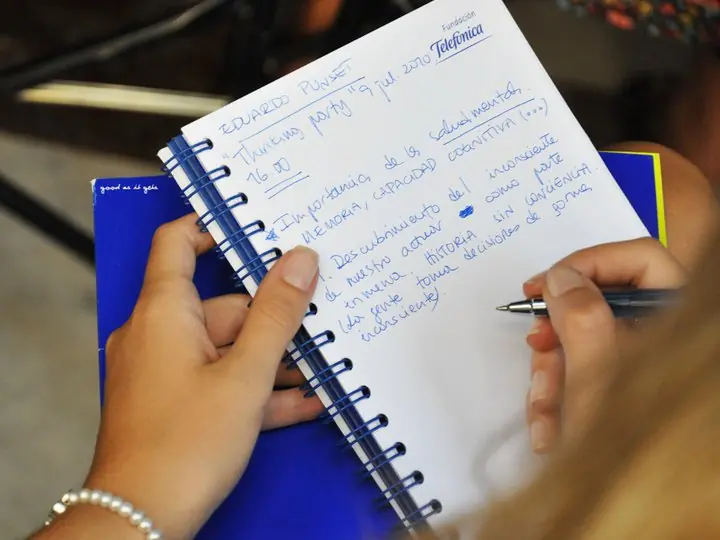 Fundación
Telefónica
EDUARDO PUNSET
"Thinking party" 9 jul. 2010
16.00
Importancia de la salud mental.
MEMORIA, CAPACIDAD COGNITIVA (...)
1. Descubrimiento del inconsciente
de nuestro actuar como parte
inmensa. HISTORIA SIN CONCIENCIA.
(la gente toma decisiones de forma
inconsciente)
good as it gets